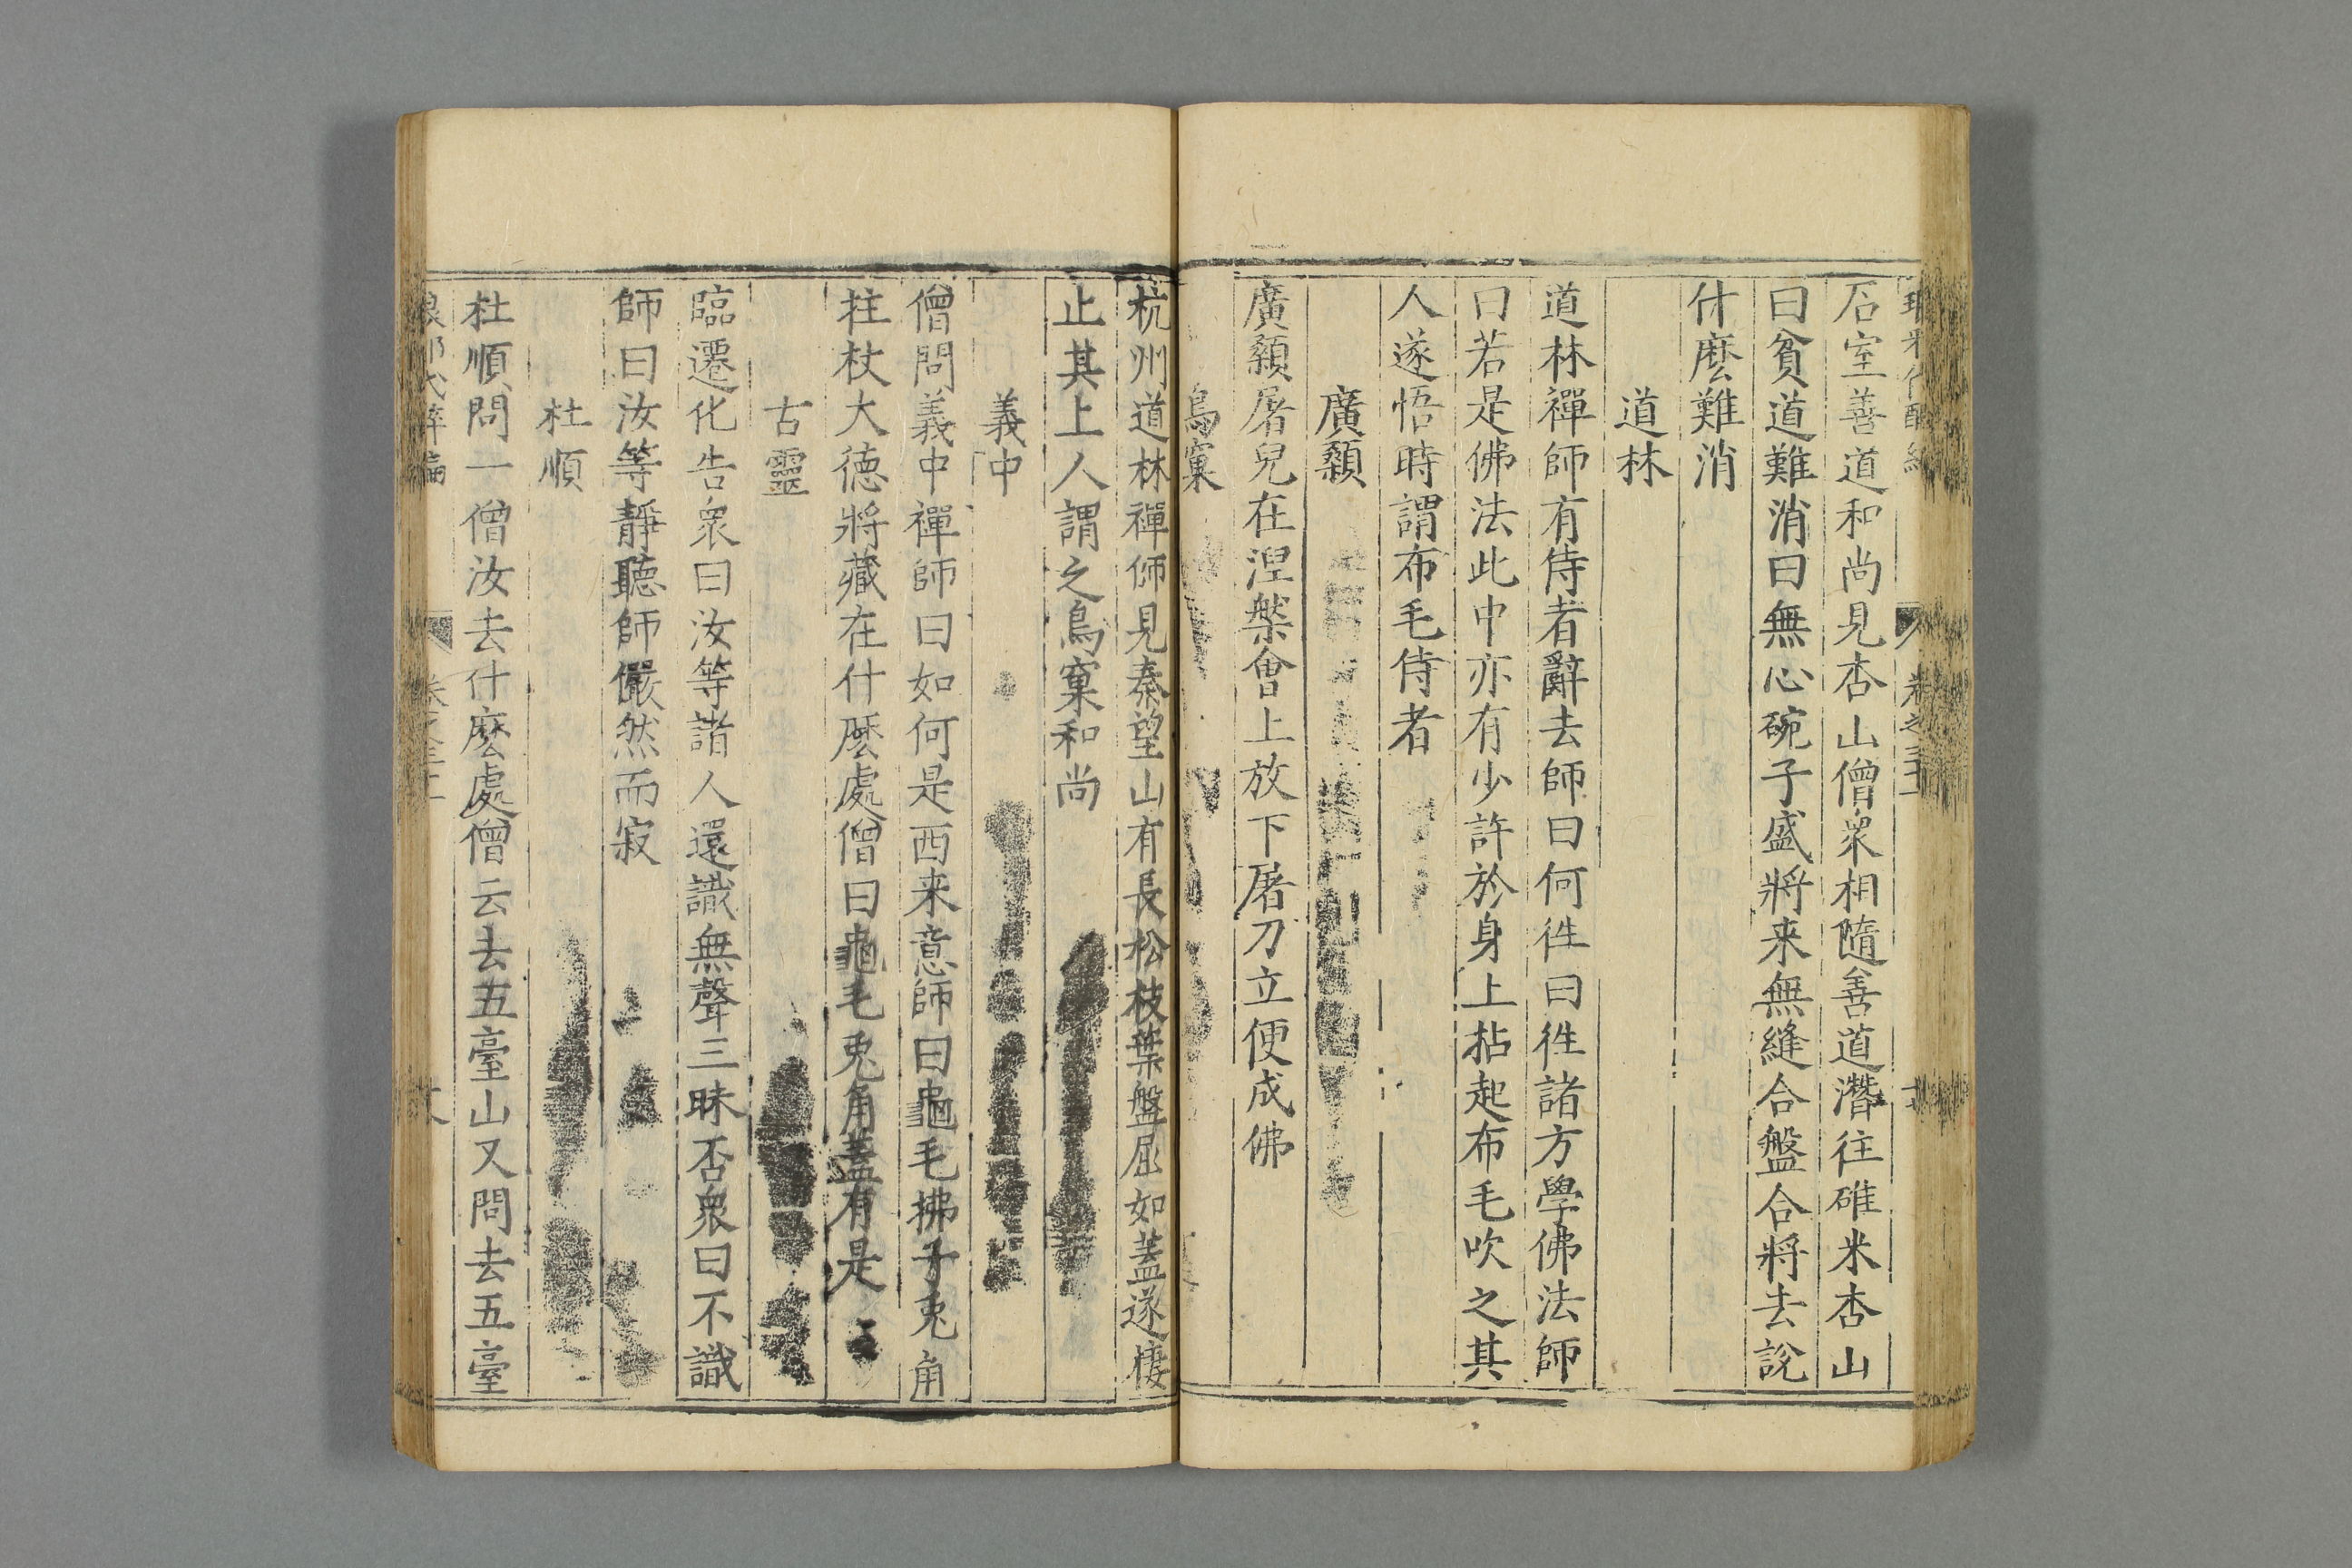 石室善道和尚見杏山僧衆相隨善道潛往碓米杏山
曰貧道難消曰無心碗子盛將来無縫合盤合將去說
什麽難消
道林
道林禪師有侍者辭去師曰何徃曰徃諸方學佛法師
曰若是佛法此中亦有少許於身上拈起布毛吹之其
人遂悟時謂布毛侍者
廣顙
廣顙屠兒在涅槃會上放下屠刀立便成佛
鳥窠
杭州道林禪師見秦望山有長松枝葉盤屈如蓋遂棲
止其上人謂之鳥窠和尚
義中
僧問義中禪師曰如何是西来意師曰龜毛拂子兎角
柱杖大德將藏在什麽處僧曰龜毛兎角蓋有是
古靈
臨遷化告衆曰汝等諸人還識無聲三昧否衆曰不識
師曰汝等靜聽師儼然而寂
杜順
杜順問一僧汝去什麽處僧云去五臺山又問去五臺